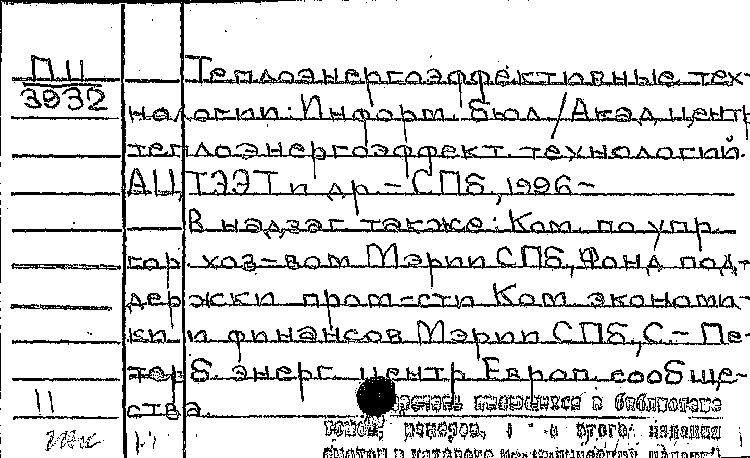 П 11
3932
Теплоэнергоэффективные тех-
нологии: Информ. бюл. / Акад. центр
теплоэнергоэффект. технологий
АЦТЭЭТ и др. - СПб., 1996 -
В надзаг. также: Ком. по упр.
гор. хоз-вом Мэрии СПб, Фонд под-
держки пром-сти Ком. экономи-
ки и финансов Мэрии СПб, С.- Пе-
терб. энерг. центр Европ. сообще-
ства.
11
в библиотеке
номеров,